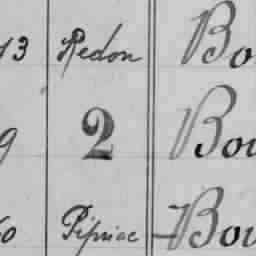 13 Redon Bo
9 2 Bou
60 Pipriac Bou